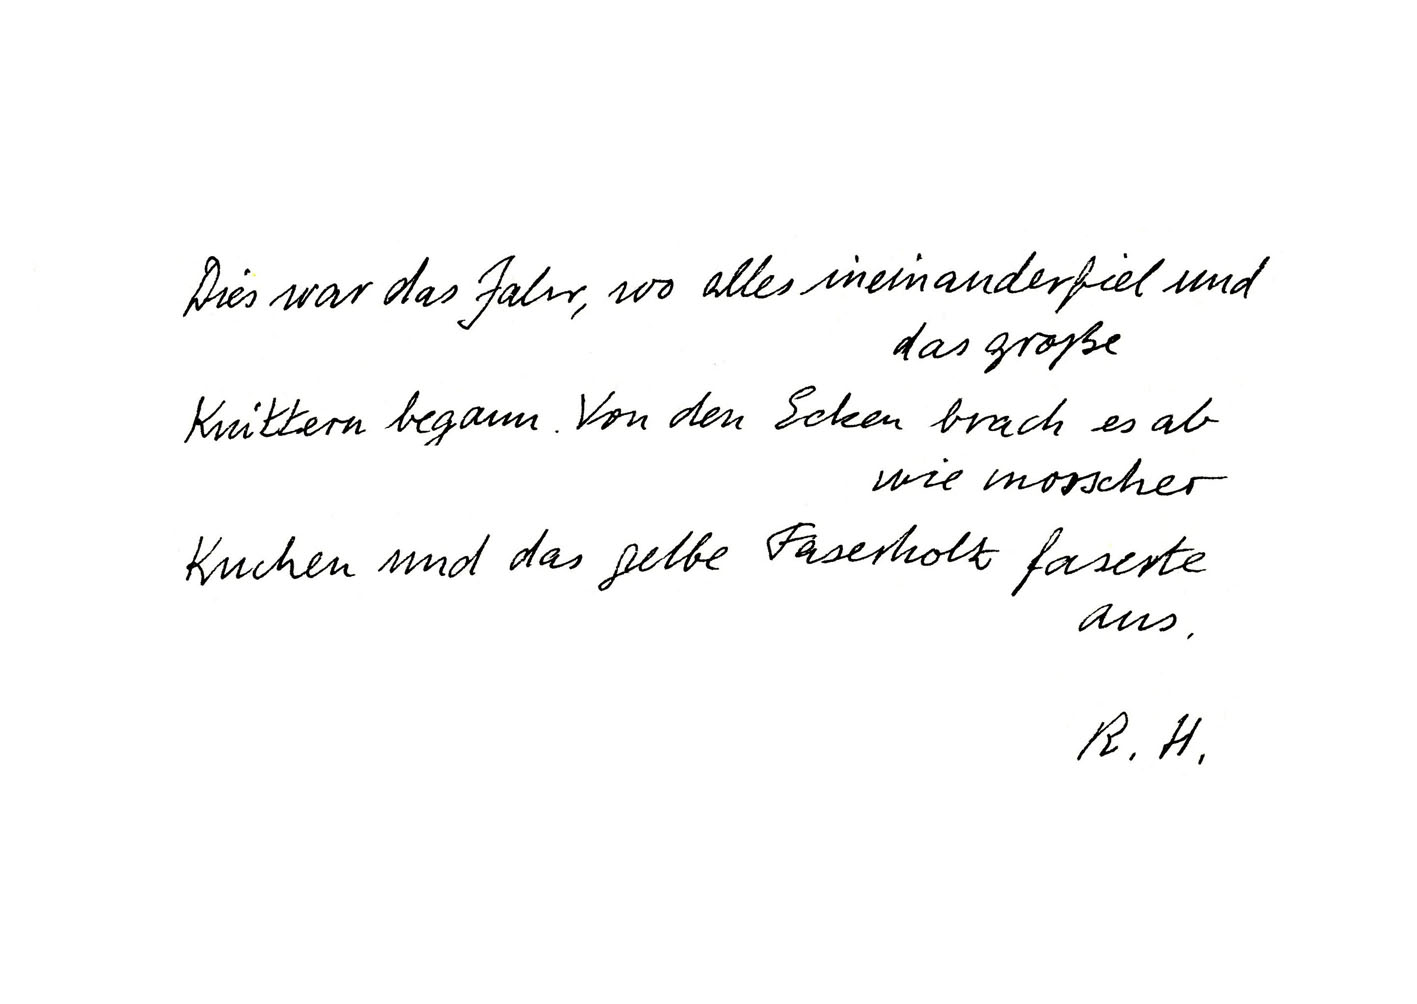 Dies war das Jahr, wo alles ineinanderfiel und
das große
Knittern begann. Von den Ecken brach es ab
wie morscher
Kuchen und das gelbe Faserholz faserte
aus.
R. H.